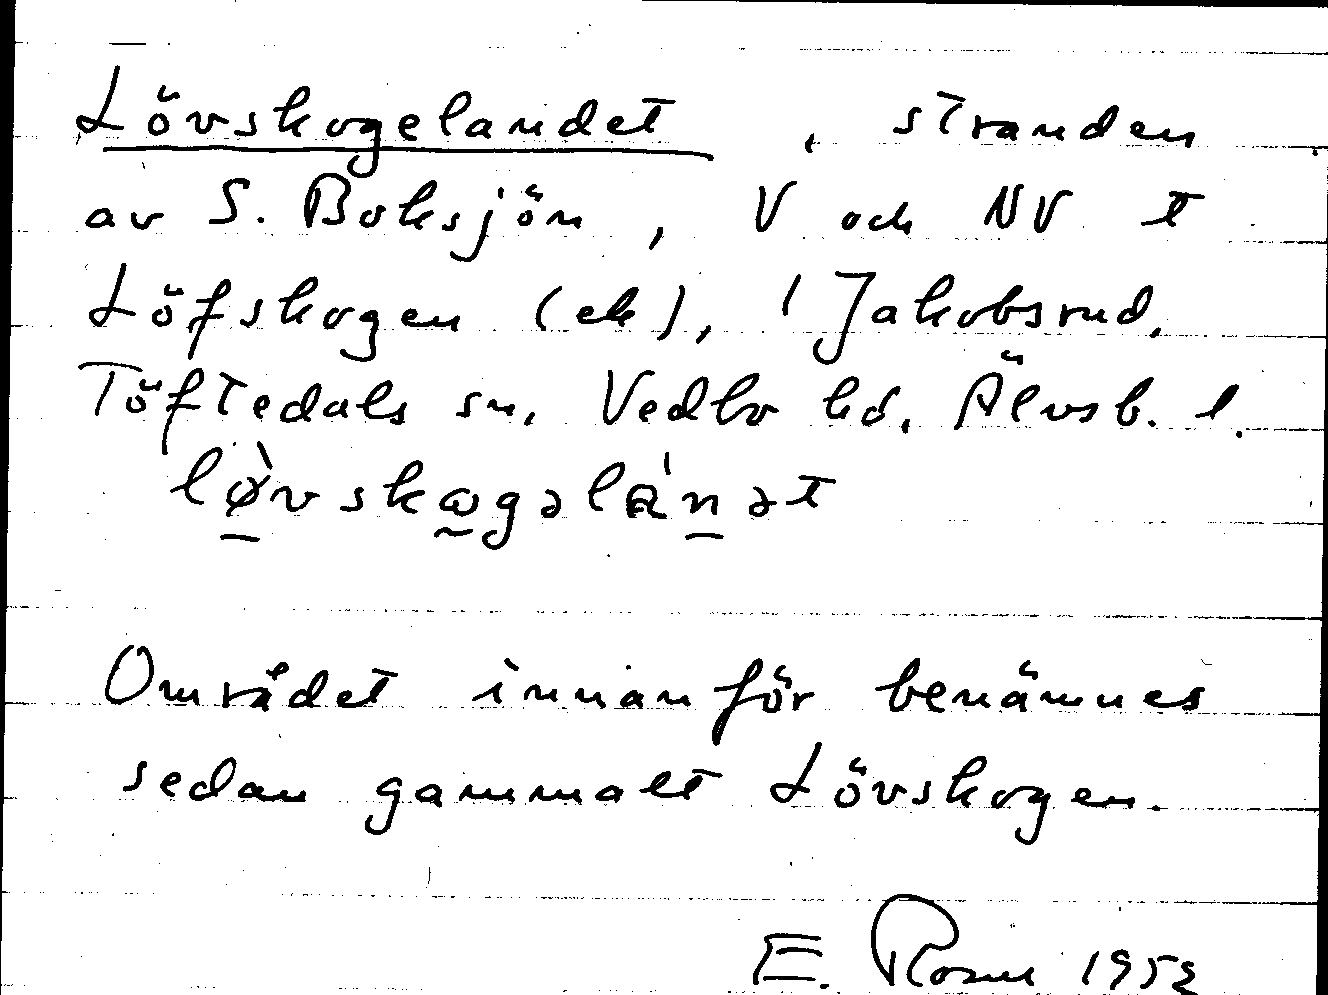 Lövskogelandet, stranden
av S. Boksjön, V och NV t
Löfskogen (ek), 1 Jakobsrud,
Töftedals sn, Vedbo hd, Älvsb. l.
lø̀vskωgəlànət
Området innanför benämnes
sedan gammalt Lövskogen.
E. 1952